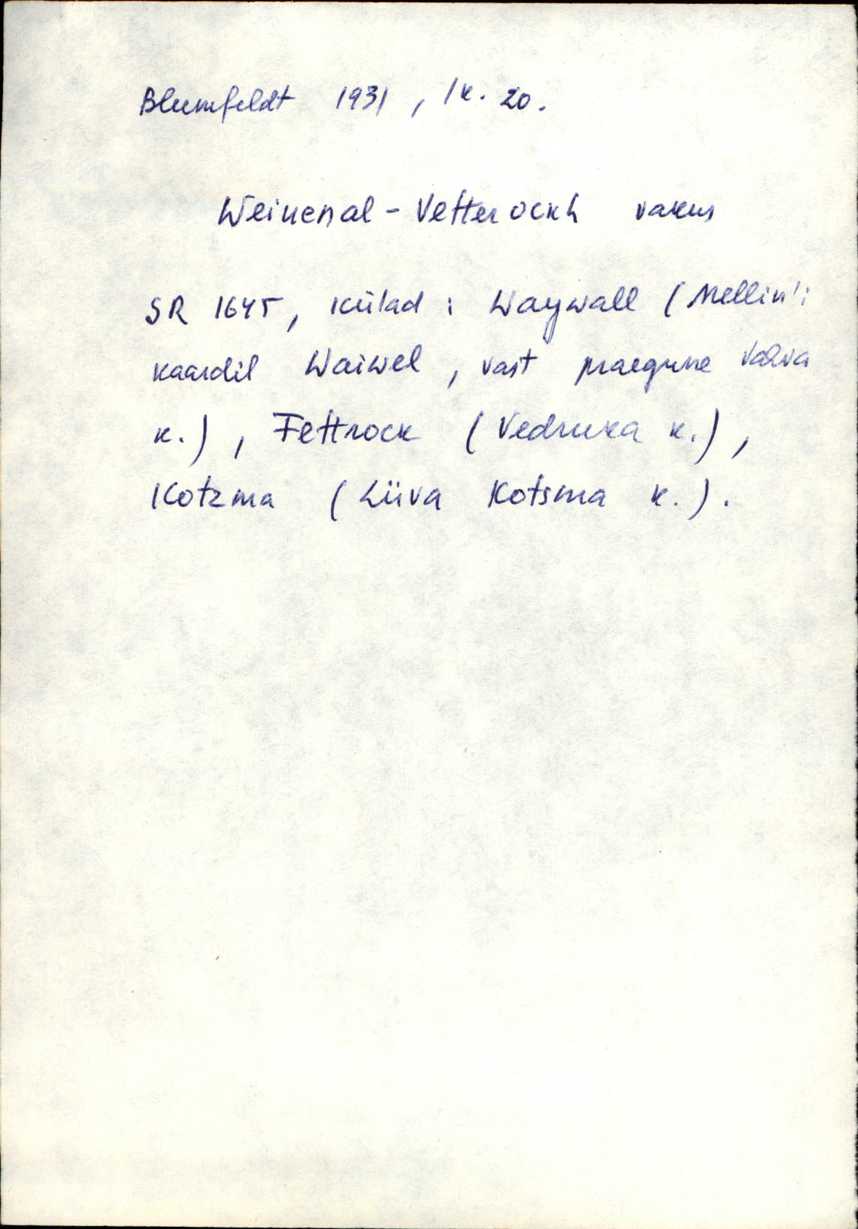 Blumfeldt 1931, lk. 20.
Weikenal - Vetterockh vakus
SR 1645, külad: Waywall (Mellin'i
kaardil Waiwel, vast praegune Vahva
k.), Fettrock (Vedruka k.),
Kotzma (Liiva Kotsma k.).